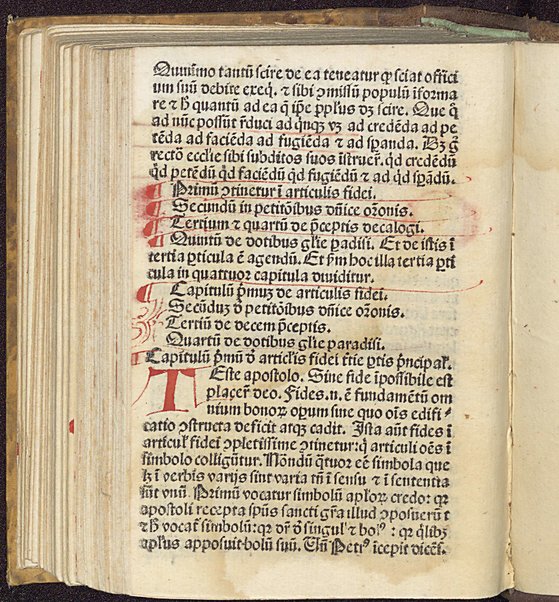 Quinīmo tantū scire de ea teneatur ꝙ sciat offici
um suū debite exeq̄. ⁊ sibi ꝯmissū populū īforma
re ⁊ ħ quantū ad ea q̄ ip̄e pp̄lus dꝫ scire. Que q̄
ad nūc possūt r̄duci ad qn̄qꝫ vꝫ ad credēda ad pe
tēda ad faciēda ad fugiēda ⁊ ad sꝑanda. Dꝫ g̊
recto ecclie sibi subditos suos īstruer̄. qd̄ credēdū
qd̄ petēdū qd̄ faciēdū qd̄ fugiēdū ⁊ ad qd̄ sꝑādū.
¶ Primū ꝯtinetur ī articulis fidei.
¶ Secundū in petitōibus dn̄ice or̄onis.
¶ Tertium ⁊ quartū de p̄ceptis decalogi.
¶ Quintū de dotibus gl̄ie ꝑadisi. Et de istis ī
tertia ꝑticula ē agendū. Et ꝑm hoc illa tertia ꝑti
cula in quattuor capitula diuiditur.
¶ Capitulū p̄muꝫ de articulis fidei.
Secūduꝫ d̄ petitōibus dn̄ice or̄onis.
Tertiū de decem p̄ceptis.
Quartū de dotibus gl̄ie paradisi.
Capitulū p̄mū d̄ articl̄is fidei t̄tie ꝑtis p̄ncipal̄.
TEste apostolo. Sine fide īpossibile est
placer̄ deo. Fides .n. ē fundamētū om
nium bonoꝝ oꝑum sine quo oīs edifi⸗
catio ꝯstructa deficit atqꝫ cadit. Ista aūt fides ī
articul̄ fidei ꝯpletissime ꝯtinetur: q̄ articuli oēs ī
simbolo colligūtur. Nōndū q̄tuor eē simbola que
lꝫ ī verbis varijs sint varia tn̄ ī sensu ⁊ ī sententia
sūt vnū. Primū vocatur simbolū apl̄oꝝ credo: qꝛ
apostoli recepta sp̄us sancti gr̄a illud ꝯposuerūt
⁊ ħ vocat̄ simbolū: qꝛ dr̄ d̄ singul̄ ⁊ bolꝰ: qꝛ q̄libꝫ
apl̄us apposuit bolū suū. Vn̄ Petrꝰ īcepit dicēs.